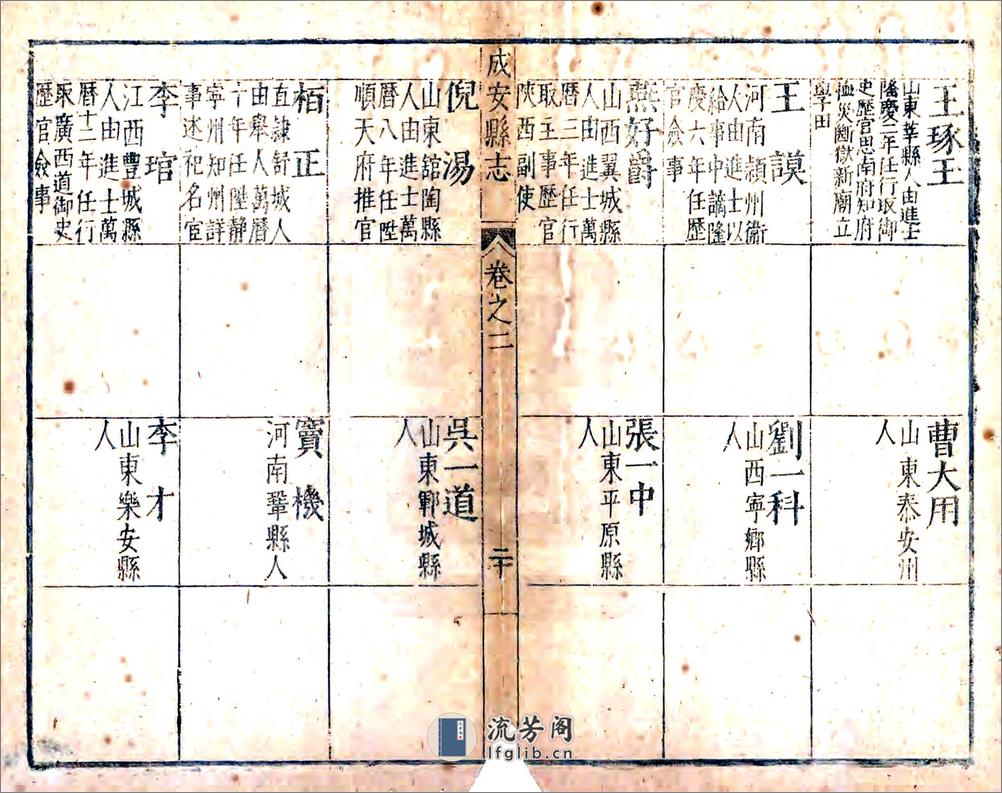 王琢玉
山東莘縣人由進士
隆慶二年任行取御
史歷官思南府知府
恤災斷獄新廟立
學田
王謨
河南潁州衞
人由進士以
給事中謫隆
慶六年任歷
官僉事
燕好爵
山西翼城縣
人由進士萬
曆三年任行
取主事歷官
陝西副使
曹大用
山東泰安州
人
劉一科
山西寧鄉縣
人
張一中
山東平原縣
人
成安縣志
卷之二
二十
倪湯
山東舘陶縣
人由進士萬
曆八年任陞
順天府推官
栢正
直隸舒城人
由舉人萬曆
十年任陞靜
寧州知州詳
事述祀名宦
李琯
江西豐城縣
人由進士萬
曆十二年任行
取廣西道御史
歷官僉事
吳一道
山東鄆城縣
人
竇機
河南鞏縣人
李才
山東樂安縣
人
流芳阁
lfglib.cn